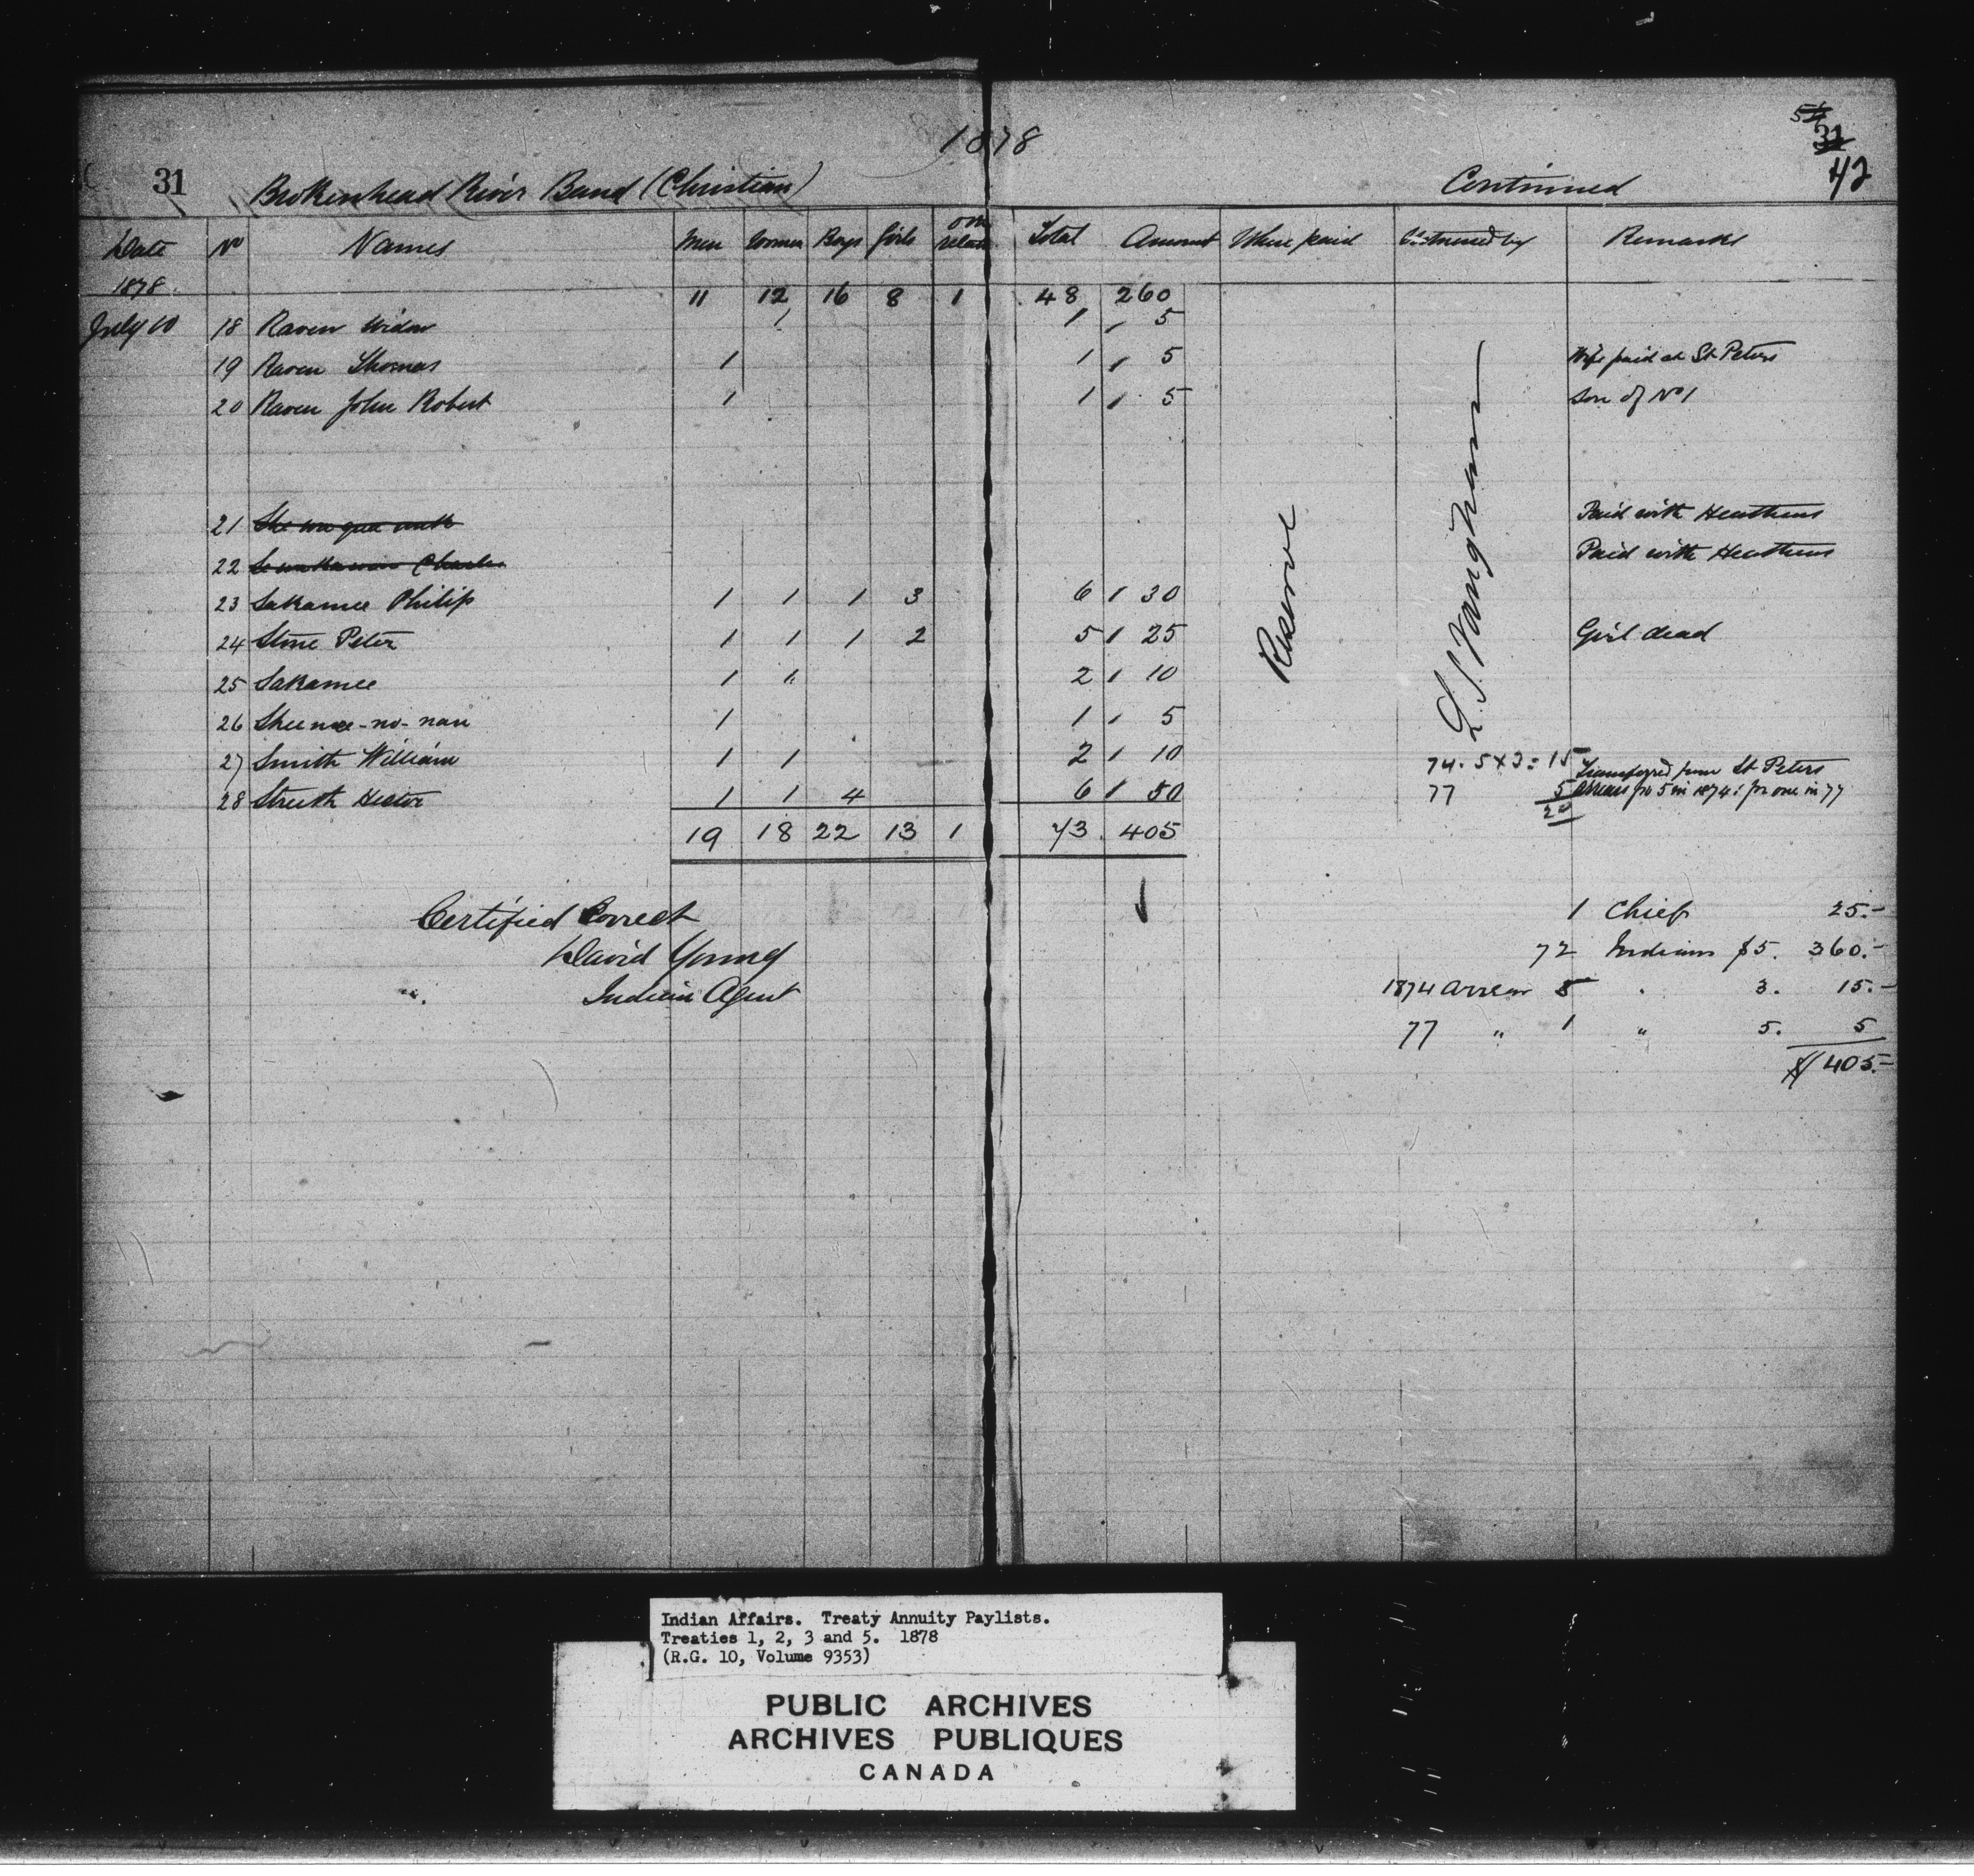 1878
54 31
42
31 Brokenhead River Band (Christian) Continued
Date No Names Men Women Boys Girls Total Amount Where paid Witnessed by Remarks
1878 11 12 16 8 1 48 260
July 10 18 Raven Widow 1 1 5
19 Raven Thomas 1 1 5 Wife paid at St Peters
20 Raven John Robert 1 1 5 Son of No 1
21 Paid with Heathens
22 Charles Paid with Heathens
23 Sakamee Philip 1 1 1 3 6 30
24 Stone Peter 1 1 1 2 5 25 Girl dead
25 Sakamee 1 " 2 10
26 Shee-no-nan 1 1 5
27 Smith William 1 1 2 10
28 Hector 1 1 4 6 50
Reserve
74. 5 x 3 = 15 Transferred from St Peters
77 5 Arrears for 5 in 1874 : for one in 77
20
19 18 22 13 1 73 405
Certified Correct
David Young
Indian Agent
1 Chief 25.-
72 Indians $5. 360.-
1874 Arrear 5 3. 15.-
77 " 1 " 5. 5
$405.-
Indian Affairs. Treaty Annuity Paylists.
Treaties 1, 2, 3 and 5. 1878
(R.G. 10, Volume 9353)
PUBLIC ARCHIVES
ARCHIVES PUBLIQUES
CANADA